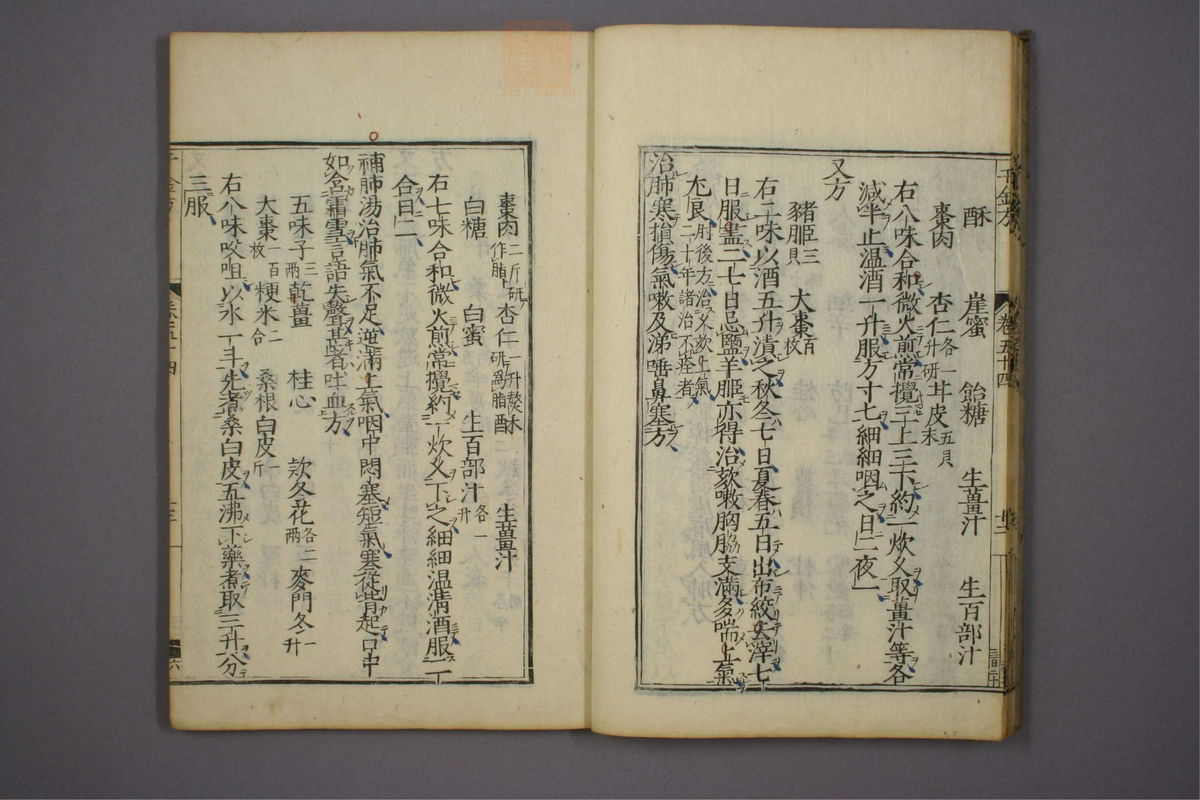 酥 崖蜜 飴糖 生薑汁 生百部汁
棗肉 杏仁各一升研 茸皮五貝末
右八味合和微火煎常攪三上三下約一炊久取薑汁等各
減半止温酒一升服方寸七細細咽之日二夜一
又方
豬胵三具 大棗百枚
右二味以酒五升漬之秋冬七日夏春五日出布絞去滓七
日服盡二七日忌鹽羊胵亦得治欬嗽胸脇支滿多喘上氣
尤良肘後方治久欬上氣二十年諸治不瘥者
治肺寒損傷氣嗽及涕唾鼻塞方
棗肉二斤研作脂 杏仁一升熬研爲脂 酥 生薑汁
白糖 白蜜 生百部汁各一升
右七味合和微火煎常攪約一炊久下之細細温清酒服二
合日二
補肺湯治肺氣不足逆滿上氣咽中悶塞短氣寒從背起口中
如含霜雪言語失聲甚者吐血方
五味子三兩 乾薑 桂心 款冬花各二兩 麥門冬一升
大棗一百枚 粳米二合 桑根白皮一斤
右八味㕮咀以水一斗先煮桑白皮五沸下藥煮取三升分
三服
千金方
卷五十四